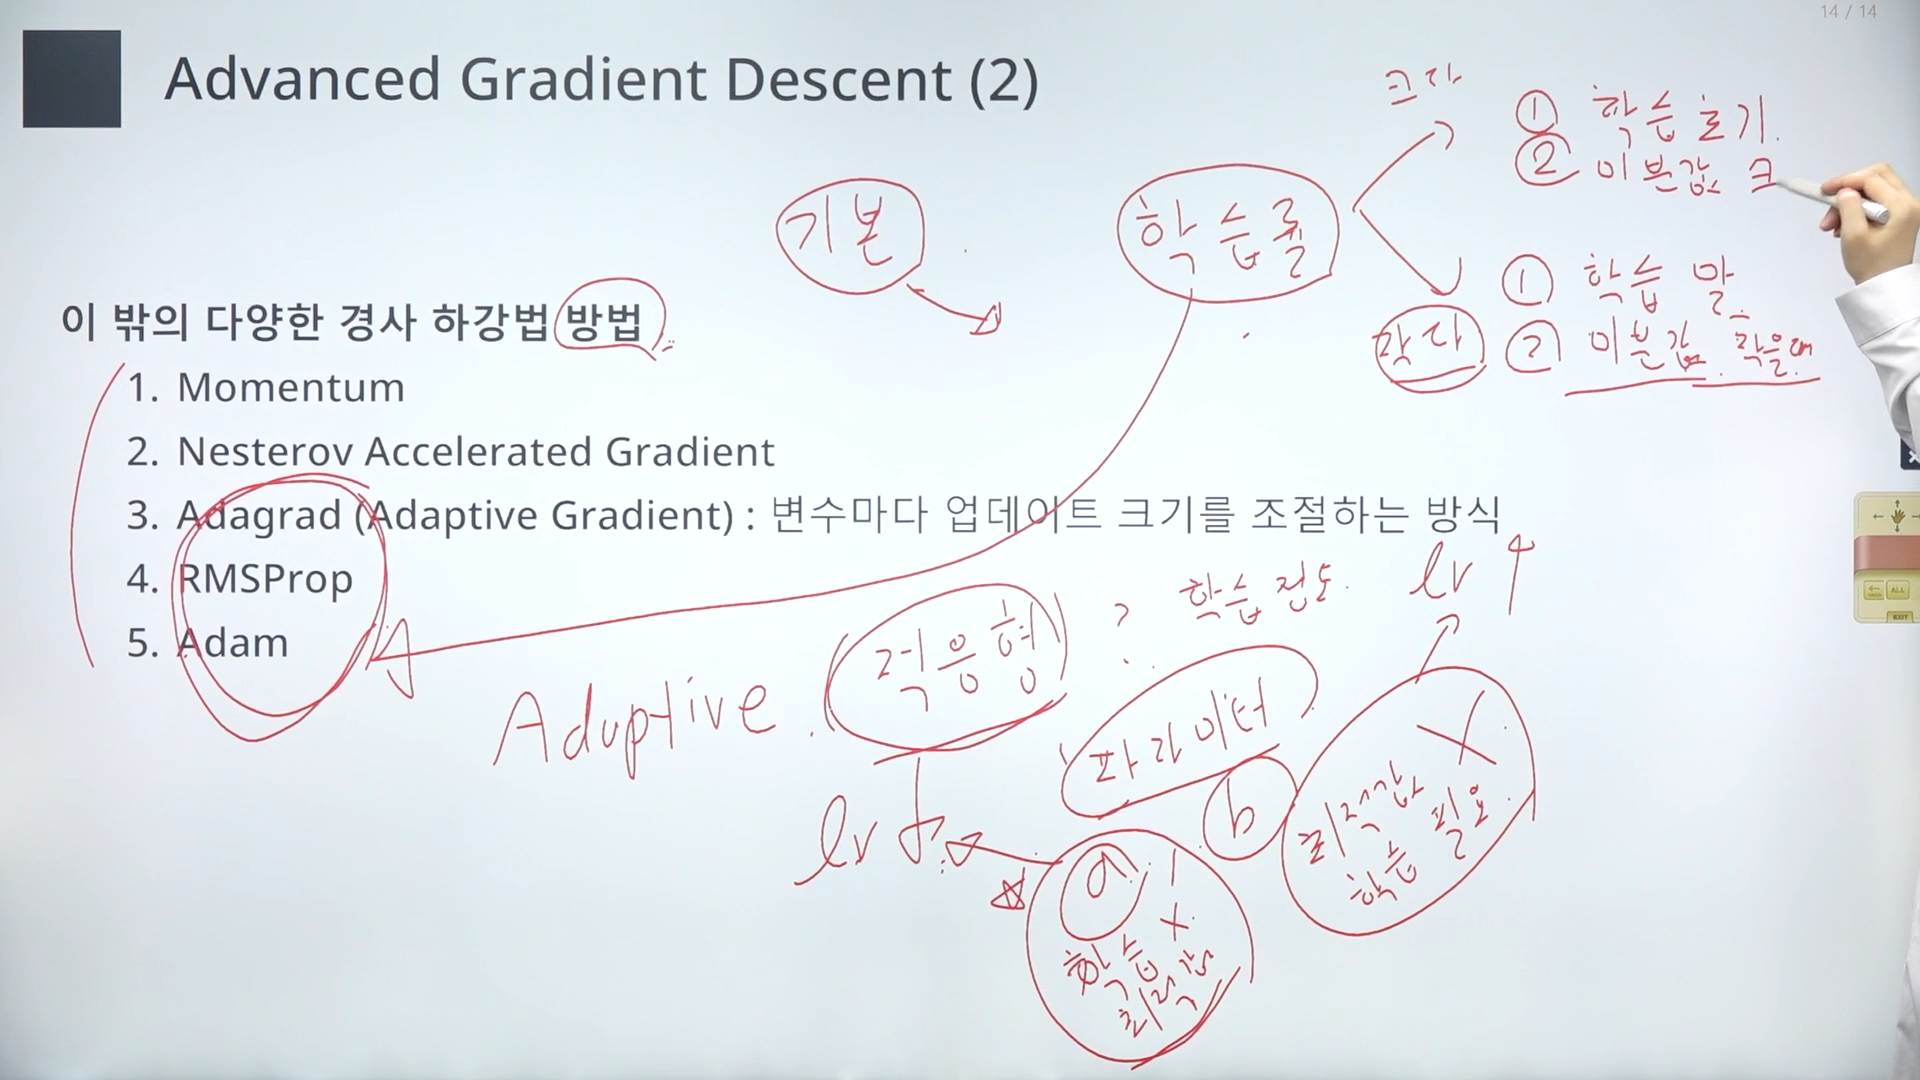 14 / 14
Advanced Gradient Descent (2)
크다
① 학습 초기.
② 미분값 크
기본
학습률
① 학습 말
작다
② 미분값 작을때
이 밖의 다양한 경사 하강법 방법
1. Momentum
2. Nesterov Accelerated Gradient
3. Adagrad (Adaptive Gradient) : 변수마다 업데이트 크기를 조절하는 방식
4. RMSProp
5. Adam
Adaptive
적응형
? 학습 정도.
lr ↑
파라미터
lr ↓
a
b
학습 X
최적값
최적값 X
학습 필요
ALL
EXIT